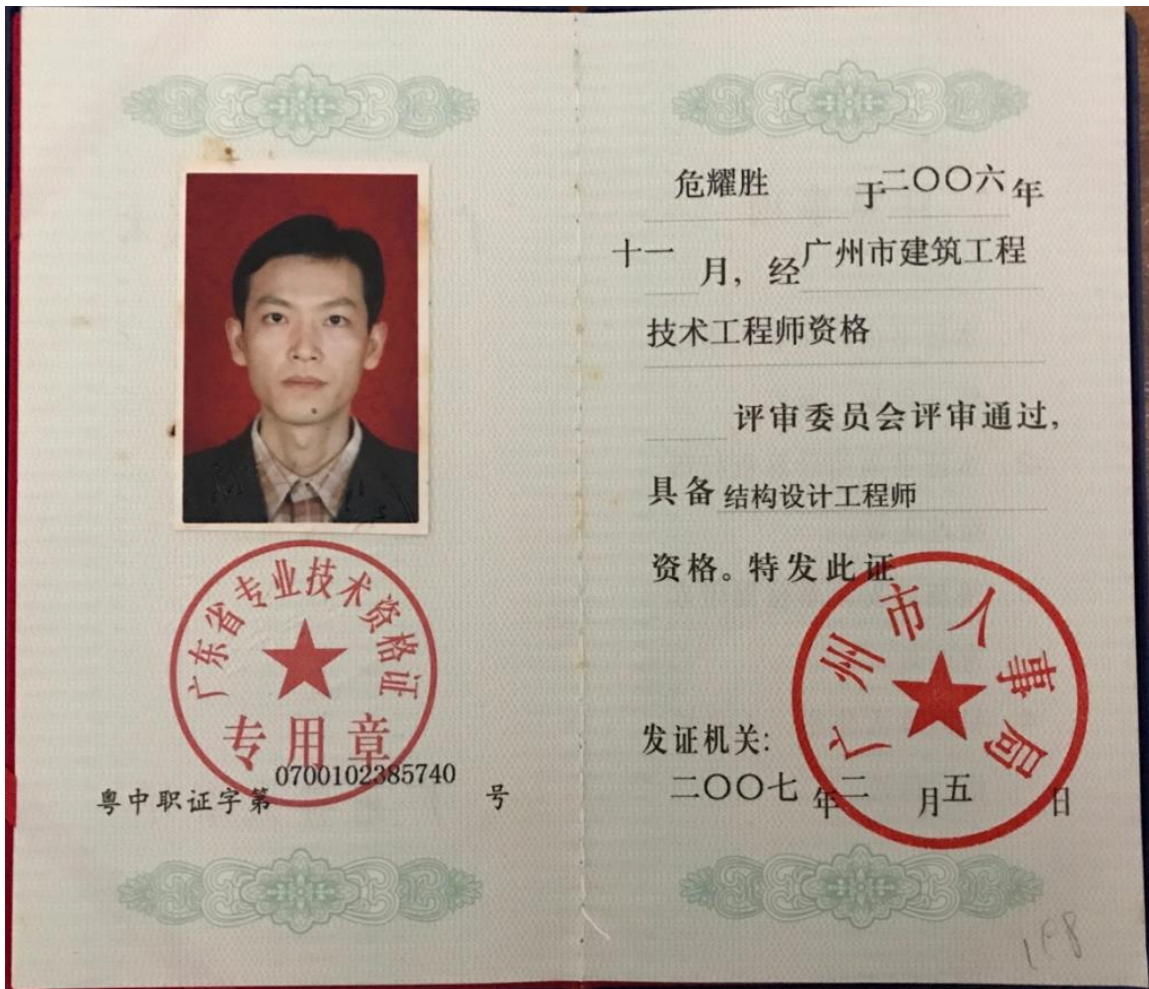 广东省专业技术资格证
专用章
粤中职证字第0700102385740号
危耀胜 于二〇〇六年
十一月，经广州市建筑工程
技术工程师资格
评审委员会评审通过，
具备结构设计工程师
资格。特发此证
广州市人事局
发证机关：
二〇〇七年二月五日